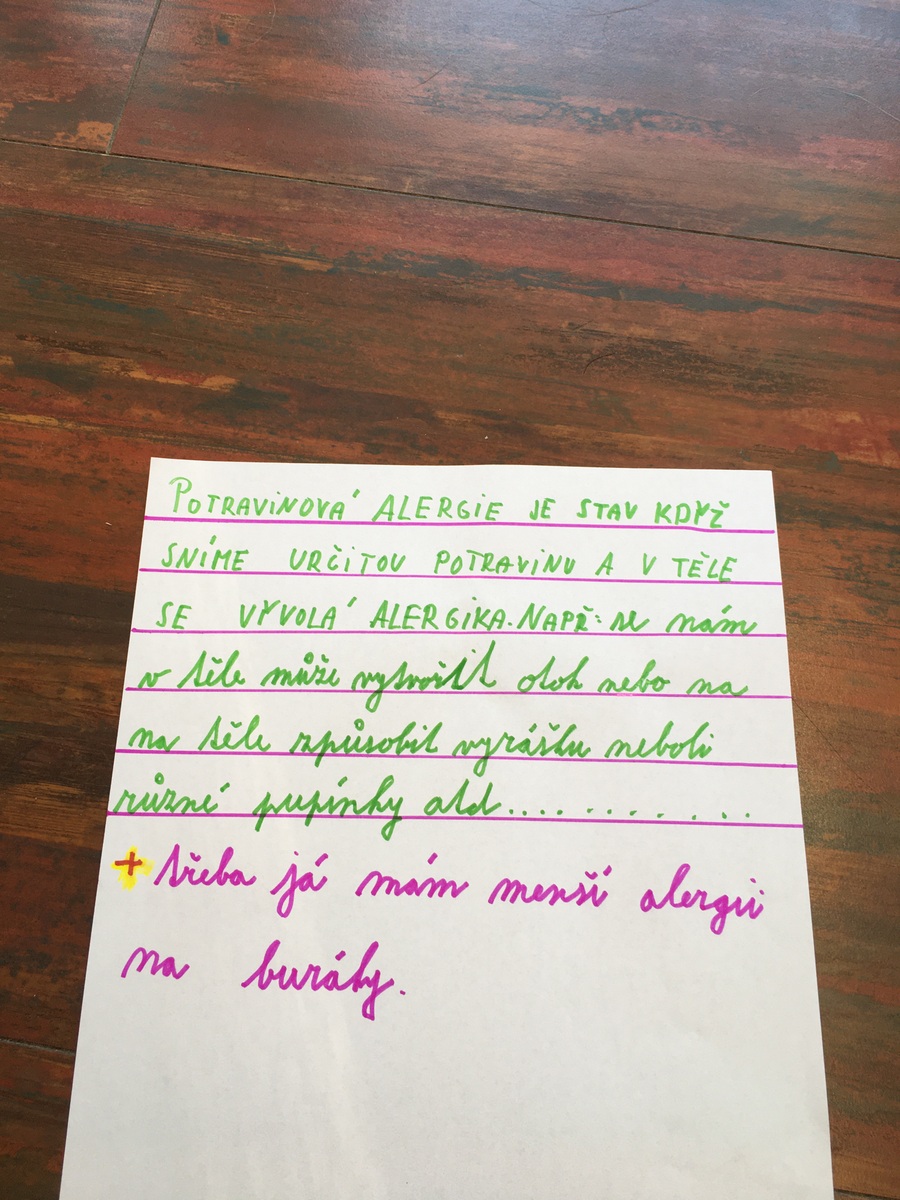 POTRAVINOVÁ ALERGIE JE STAV KDYŽ
SNÍME URČITOU POTRAVINU A V TĚLE
SE VYVOLÁ ALERGIKA. NAPŘ: se nám
v těle může vytvořit otok nebo na
na těle způsobit vyrážku neboli
různé pupínky atd.... . . . . . . .
+ třeba já mám menší alergii
na buráky.